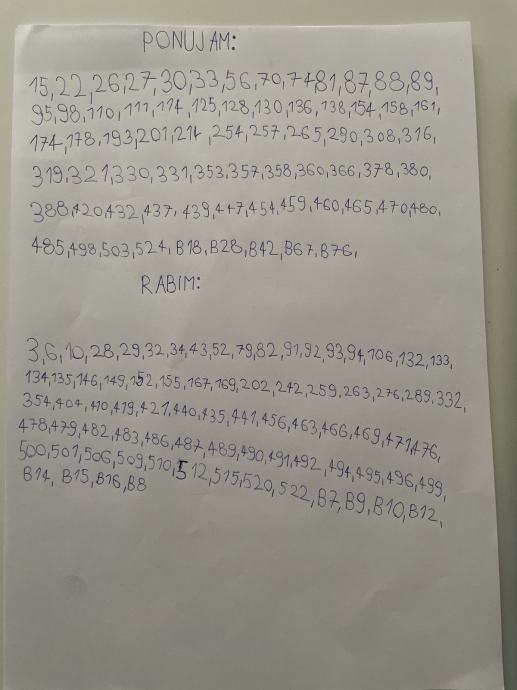 PONUJAM:
15,22,26,27,30,33,56,70,74,81,87,88,89,
95,98,110,111,114,125,128,130,136,138,154,158,161,
174,178,193,201,214,254,257,265,290,308,316,
319,321,330,331,353,357,358,360,366,378,380,
388,420,432,437,439,447,454,459,460,465,470,480,
485,498,503,524,B18,B28,B42,B67,B76,
RABIM:
3,6,10,28,29,32,34,43,52,79,82,91,92,93,94,106,132,133,
134,135,146,149,152,155,167,169,202,242,259,263,276,289,332,
354,404,410,419,421,440,435,441,456,463,466,469,471,476,
478,479,482,483,486,487,489,490,491,492,494,495,496,499,
500,501,506,509,510,512,515,520,522,B7,B9,B10,B12,
B14, B15,B16,B8